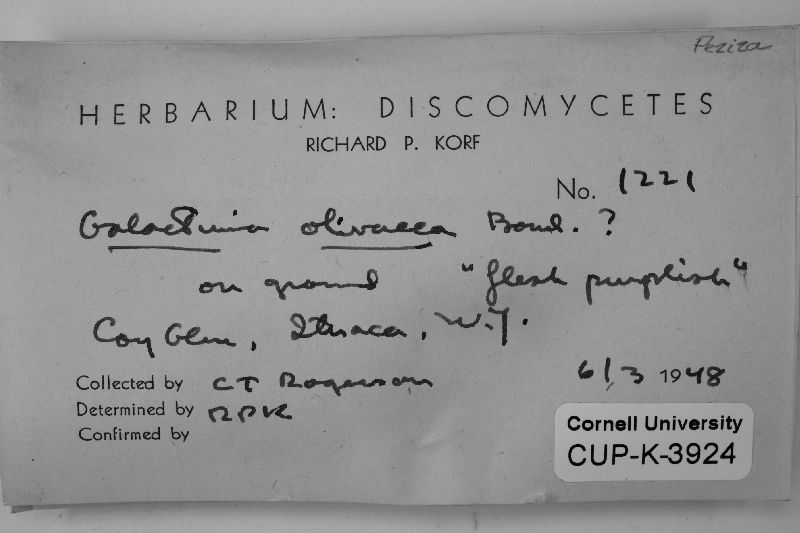 Peziza
HERBARIUM: DISCOMYCETES
RICHARD P. KORF
No. 1221
Galactinia olivacea Boud. ?
on ground "flesh purplish"
Coy Glen, Ithaca, N.Y.
Collected by CT Rogerson 6/3 1948
Determined by RPK
Confirmed by
Cornell University
CUP-K-3924